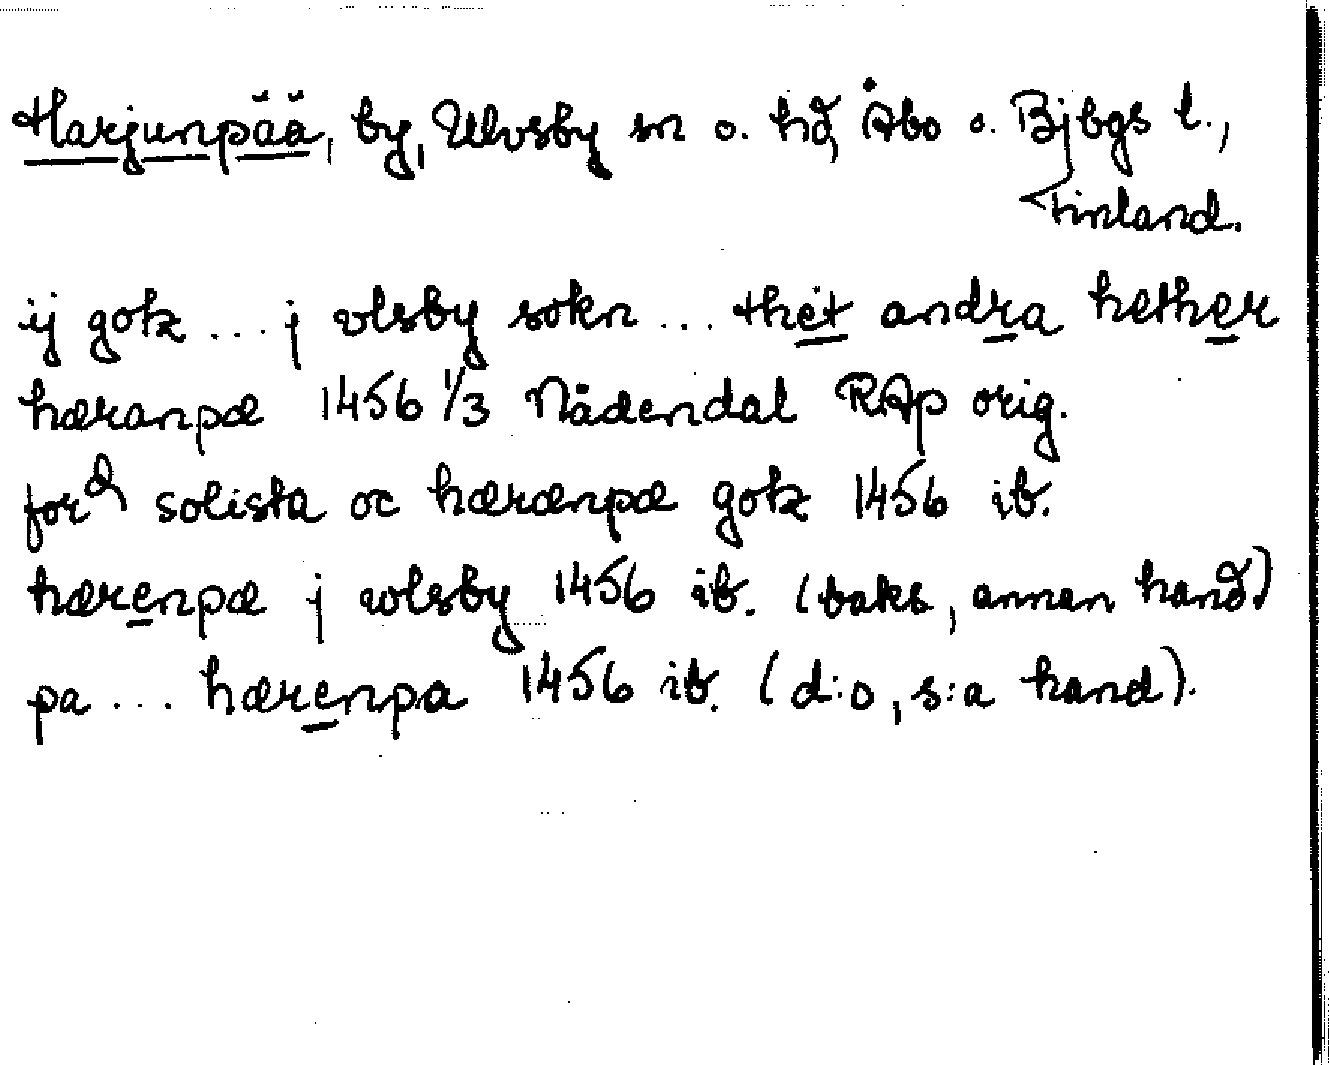 Harjunpää, by, Ulvsby sn o. hd, Åbo o. Bjbgs l.,
Finland.
ij gotz ... j vlsby sokn ... thet andra hether
hæranpæ 1456 1/3 Nådendal RAp orig.
for:d solista oc hæranpæ gotz 1456 ib.
hærenpæ j wlsby 1456 ib. (baks, annan hand)
pa ... hærenpa 1456 ib. (d:o, s:a hand).